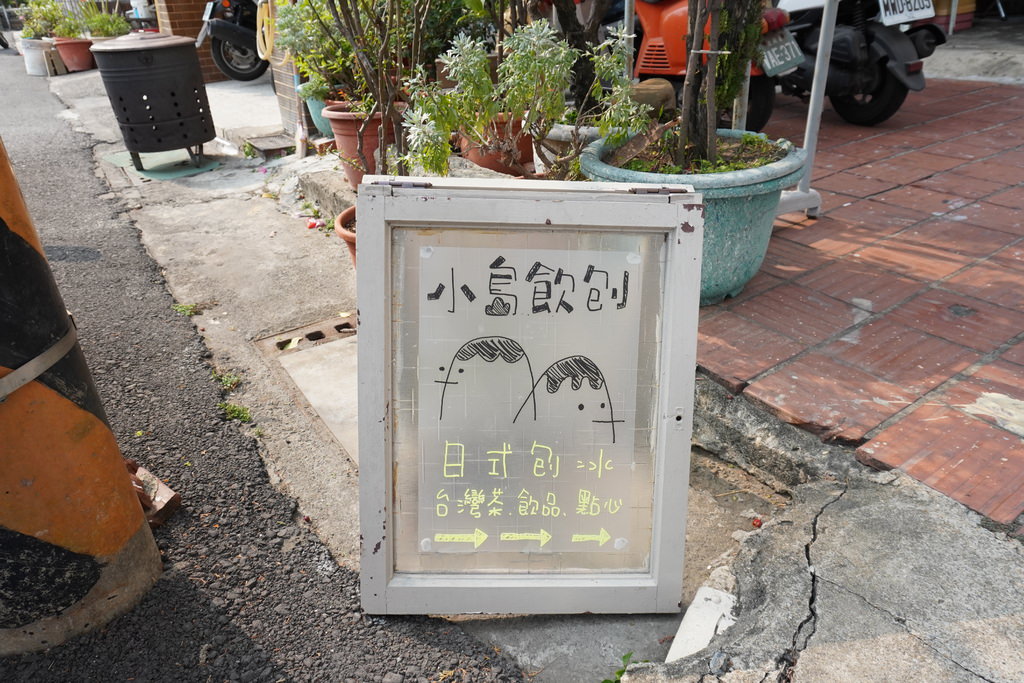 小島飲刨
日式刨冰
台灣茶.飲品、點心
MWD-8205